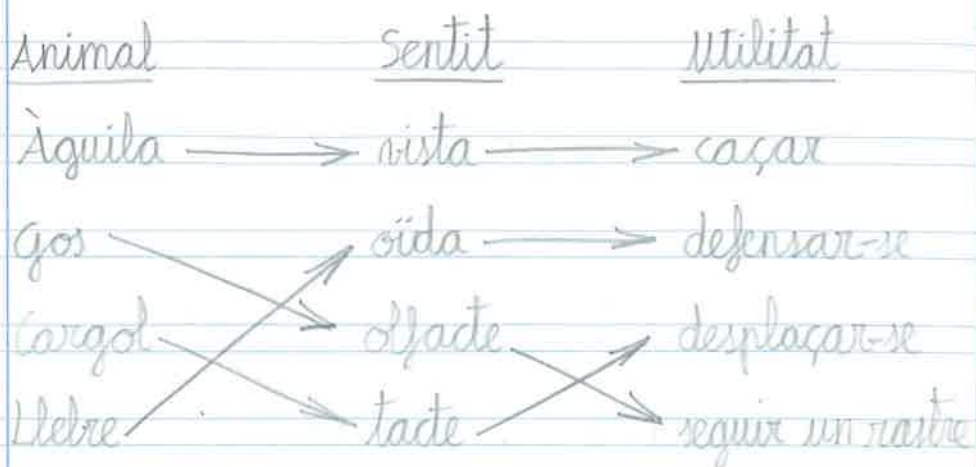 Animal Sentit Utilitat
Àguila vista caçar
Gos oïda defensar-se
Cargol olfacte desplaçar-se
Llebre tacte seguir un rastre